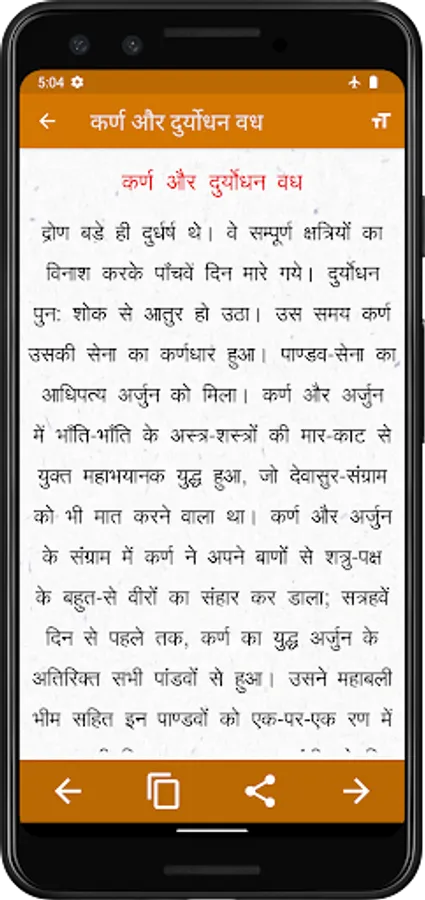 5:04
कर्ण और दुर्योधन वध
कर्ण और दुर्योधन वध
द्रोण बड़े ही दुर्धर्ष थे। वे सम्पूर्ण क्षत्रियों का
विनाश करके पाँचवें दिन मारे गये। दुर्योधन
पुन: शोक से आतुर हो उठा। उस समय कर्ण
उसकी सेना का कर्णधार हुआ। पाण्डव-सेना का
आधिपत्य अर्जुन को मिला। कर्ण और अर्जुन
में भाँति-भाँति के अस्त्र-शस्त्रों की मार-काट से
युक्त महाभयानक युद्ध हुआ, जो देवासुर-संग्राम
को भी मात करने वाला था। कर्ण और अर्जुन
के संग्राम में कर्ण ने अपने बाणों से शत्रु-पक्ष
के बहुत-से वीरों का संहार कर डाला; सत्रहवें
दिन से पहले तक, कर्ण का युद्ध अर्जुन के
अतिरिक्त सभी पांडवों से हुआ। उसने महाबली
भीम सहित इन पाण्डवों को एक-पर-एक रण में